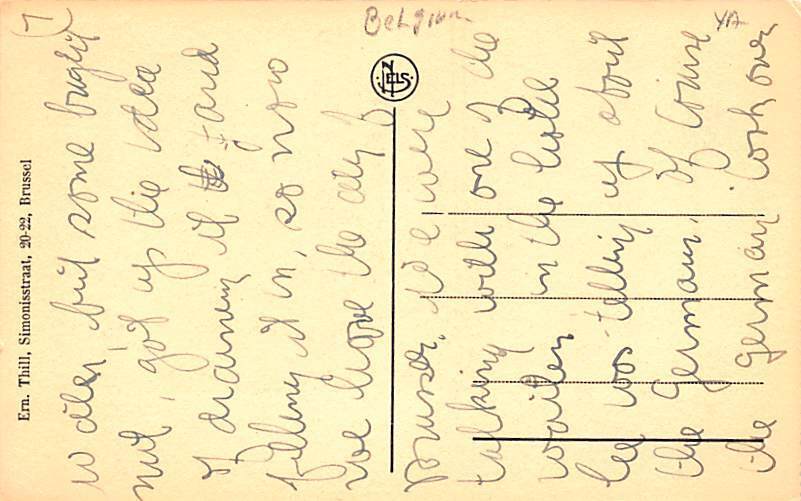 7
water, but some
nut, got up the idea
of draining it and
filling it in, so now
we have the city of
Brussels. We were
talking with one of the
waiters in the hotel
he was telling us about
the Germans. Of course
the German took over
Belgium
NELS
Ern. Thill, Simonisstraat, 20-22, Brussel